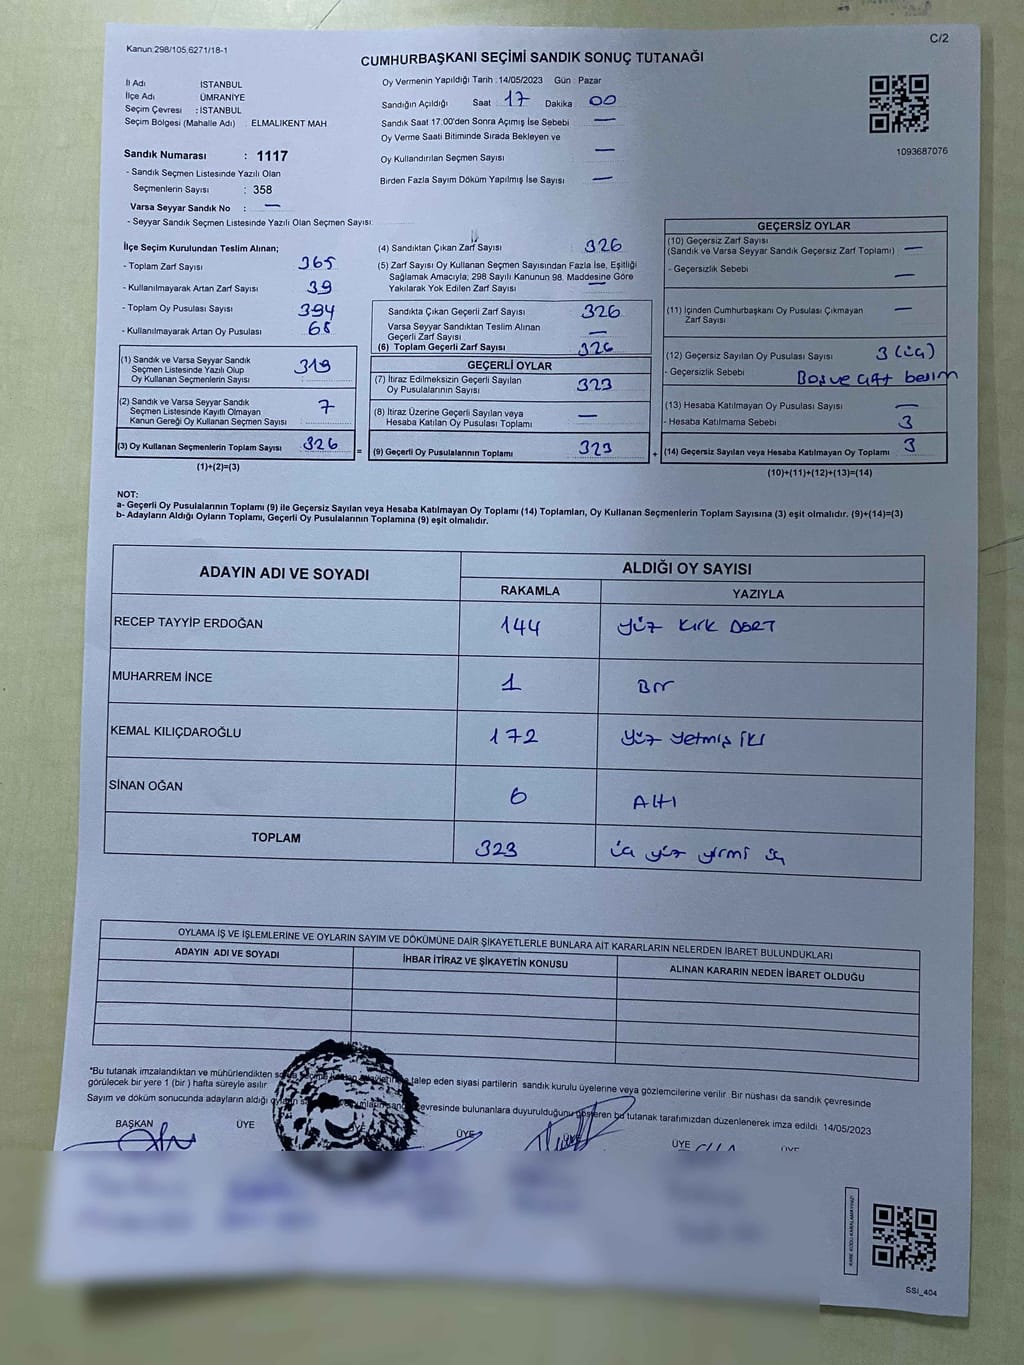 C/2
Kanun:298/105,6271/18-1
CUMHURBAŞKANI SEÇİMİ SANDIK SONUÇ TUTANAĞI
İl Adı İSTANBUL
İlçe Adı ÜMRANİYE
Seçim Çevresi : İSTANBUL
Seçim Bölgesi (Mahalle Adı) : ELMALIKENT MAH
Sandık Numarası : 1117
- Sandık Seçmen Listesinde Yazılı Olan
Seçmenlerin Sayısı : 358
Varsa Seyyar Sandık No : —
- Seyyar Sandık Seçmen Listesinde Yazılı Olan Seçmen Sayısı:
Oy Vermenin Yapıldığı Tarih : 14/05/2023 Gün : Pazar
Sandığın Açıldığı Saat 17 Dakika 00
Sandık Saat 17:00'den Sonra Açımış İse Sebebi —
Oy Verme Saati Bitiminde Sırada Bekleyen ve
Oy Kullandırılan Seçmen Sayısı —
Birden Fazla Sayım Döküm Yapılmış İse Sayısı —
1093687076
İlçe Seçim Kurulundan Teslim Alınan;
- Toplam Zarf Sayısı 365
- Kullanılmayarak Artan Zarf Sayısı 39
- Toplam Oy Pusulası Sayısı 394
- Kullanılmayarak Artan Oy Pusulası 68
(1) Sandık ve Varsa Seyyar Sandık
Seçmen Listesinde Yazılı Olup
Oy Kullanan Seçmenlerin Sayısı 319
(2) Sandık ve Varsa Seyyar Sandık
Seçmen Listesinde Kayıtlı Olmayan
Kanun Gereği Oy Kullanan Seçmen Sayısı 7
(3) Oy Kullanan Seçmenlerin Toplam Sayısı 326 =
(1)+(2)=(3)
(4) Sandıktan Çıkan Zarf Sayısı 326
(5) Zarf Sayısı Oy Kullanan Seçmen Sayısından Fazla İse, Eşitliği
Sağlamak Amacıyla, 298 Sayılı Kanunun 98. Maddesine Göre
Yakılarak Yok Edilen Zarf Sayısı —
Sandıkta Çıkan Geçerli Zarf Sayısı 326
Varsa Seyyar Sandıktan Teslim Alınan
Geçerli Zarf Sayısı —
(6) Toplam Geçerli Zarf Sayısı 326
GEÇERLİ OYLAR
(7) İtiraz Edilmeksizin Geçerli Sayılan
Oy Pusulalarının Sayısı 323
(8) İtiraz Üzerine Geçerli Sayılan veya
Hesaba Katılan Oy Pusulası Toplamı —
(9) Geçerli Oy Pusulalarının Toplamı 323 +
GEÇERSİZ OYLAR
(10) Geçersiz Zarf Sayısı
(Sandık ve Varsa Seyyar Sandık Geçersiz Zarf Toplamı) —
- Geçersizlik Sebebi —
(11) İçinden Cumhurbaşkanı Oy Pusulası Çıkmayan
Zarf Sayısı —
(12) Geçersiz Sayılan Oy Pusulası Sayısı 3 (üç)
- Geçersizlik Sebebi Boş ve çift basım
(13) Hesaba Katılmayan Oy Pusulası Sayısı —
- Hesaba Katılmama Sebebi 3
(14) Geçersiz Sayılan veya Hesaba Katılmayan Oy Toplamı 3
(10)+(11)+(12)+(13)=(14)
NOT:
a- Geçerli Oy Pusulalarının Toplamı (9) ile Geçersiz Sayılan veya Hesaba Katılmayan Oy Toplamı (14) Toplamları, Oy Kullanan Seçmenlerin Toplam Sayısına (3) eşit olmalıdır. (9)+(14)=(3)
b- Adayların Aldığı Oyların Toplamı, Geçerli Oy Pusulalarının Toplamına (9) eşit olmalıdır.
ADAYIN ADI VE SOYADI ALDIĞI OY SAYISI
RAKAMLA YAZIYLA
RECEP TAYYİP ERDOĞAN 144 yüz kırk DÖRT
MUHARREM İNCE 1 Bir
KEMAL KILIÇDAROĞLU 172 yüz yetmiş iki
SİNAN OĞAN 6 Altı
TOPLAM 323 üç yüz yirmi üç
OYLAMA İŞ VE İŞLEMLERİNE VE OYLARIN SAYIM VE DÖKÜMÜNE DAİR ŞİKAYETLERLE BUNLARA AİT KARARLARIN NELERDEN İBARET BULUNDUKLARI
ADAYIN ADI VE SOYADI İHBAR İTİRAZ VE ŞİKAYETİN KONUSU ALINAN KARARIN NEDEN İBARET OLDUĞU
"Bu tutanak imzalandıktan ve mühürlendikten talep eden siyasi partilerin sandık kurulu üyelerine veya gözlemcilerine verilir. Bir nüshası da sandık çevresinde
görülecek bir yere 1 (bir) hafta süreyle asılır
Sayım ve döküm sonucunda adayların aldığı çevresinde bulunanlara duyurulduğunu gösteren bu tutanak tarafımızdan düzenlenerek imza edildi. 14/05/2023
BAŞKAN ÜYE ÜYE ÜYE ÜYE ÜYE
KARE KODU KARALAMAYINIZ!
SSI_404